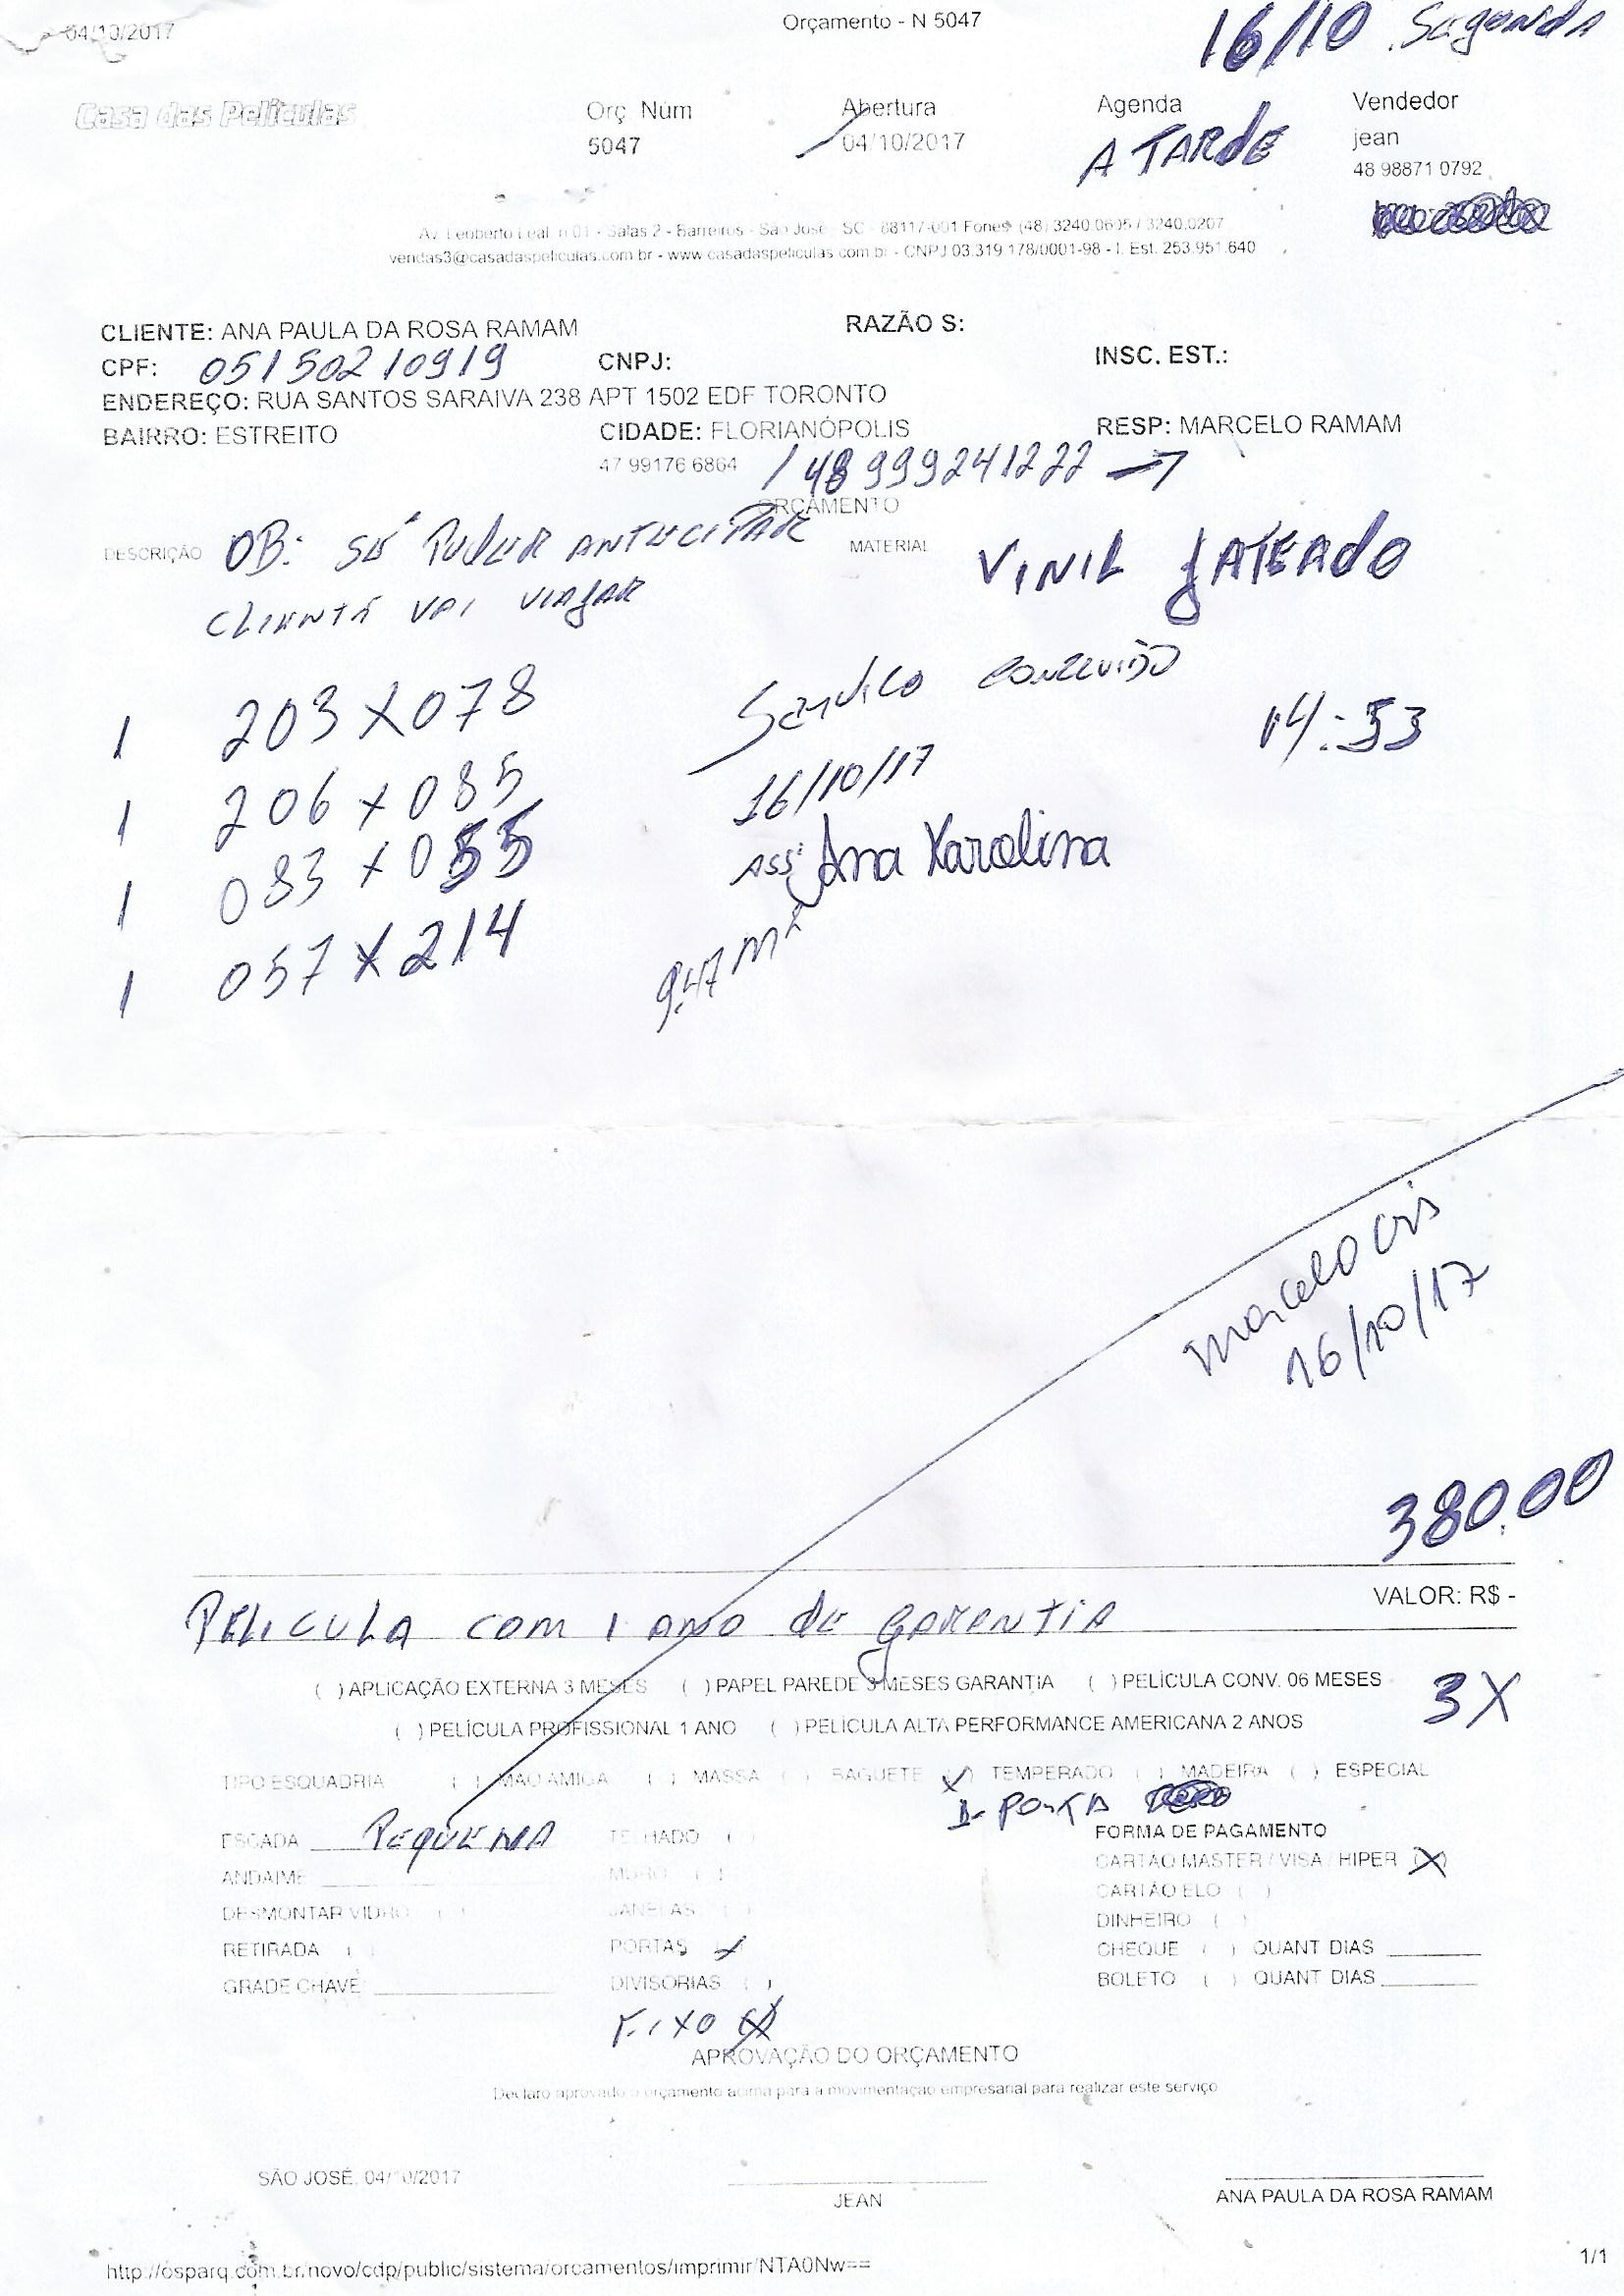 04/10/2017 Orçamento - N 5047 16/10 Segunda
Casa das Películas Orç. Núm Abertura Agenda Vendedor
5047 04/10/2017 A TARDE jean
48 98871 0792
Av. Leoberto Leal, n 01 - Salas 2 - Barreiros - São José - SC - 88117-001 Fones (48) 3240.0605 / 3240.0207
vendas3@casadaspeliculas.com.br - www.casadaspeliculas.com.br - CNPJ 03.319.178/0001-98 - I. Est. 253.951.640
CLIENTE: ANA PAULA DA ROSA RAMAM RAZÃO S:
CPF: 05150210919 CNPJ: INSC. EST.:
ENDEREÇO: RUA SANTOS SARAIVA 238 APT 1502 EDF TORONTO
BAIRRO: ESTREITO CIDADE: FLORIANÓPOLIS RESP: MARCELO RAMAM
47 99176 6864 / 48 999241222
ORÇAMENTO
DESCRIÇÃO OB: SE PUDER ANTECIPAR MATERIAL VINIL JATEADO
CLIENTE VAI VIAJAR
1 203 X 078 Serviço concluido 14:53
1 206 x 085 16/10/17
1 083 x 055 ASS: Ana Karolina
1 057 X 214 9,47 m²
Marcelo
16/10/17
380.00
VALOR: R$ -
PELICULA com 1 ANO de GARANTIA
( ) APLICAÇÃO EXTERNA 3 MESES ( ) PAPEL PAREDE 3 MESES GARANTIA ( ) PELÍCULA CONV. 06 MESES 3X
( ) PELÍCULA PROFISSIONAL 1 ANO ( ) PELÍCULA ALTA PERFORMANCE AMERICANA 2 ANOS
TIPO ESQUADRIA ( ) MÃO AMIGA ( ) MASSA ( ) BAGUETE (X) TEMPERADO ( ) MADEIRA ( ) ESPECIAL
1- PORTA
ESCADA PEQUENA TELHADO ( ) FORMA DE PAGAMENTO
ANDAIME MURO ( ) CARTÃO MASTER / VISA / HIPER (X)
DESMONTAR VIDRO ( ) JANELAS ( ) CARTÃO ELO ( )
DINHEIRO ( )
RETIRADA ( ) PORTAS CHEQUE ( ) QUANT DIAS
GRADE CHAVE DIVISÓRIAS ( ) BOLETO ( ) QUANT DIAS
FIXO (X)
APROVAÇÃO DO ORÇAMENTO
Declaro aprovado o orçamento acima para a movimentação empresarial para realizar este serviço
SÃO JOSÉ, 04/10/2017
JEAN ANA PAULA DA ROSA RAMAM
http://osparq.com.br/novo/cdp/public/sistema/orcamentos/imprimir/NTA0Nw== 1/1